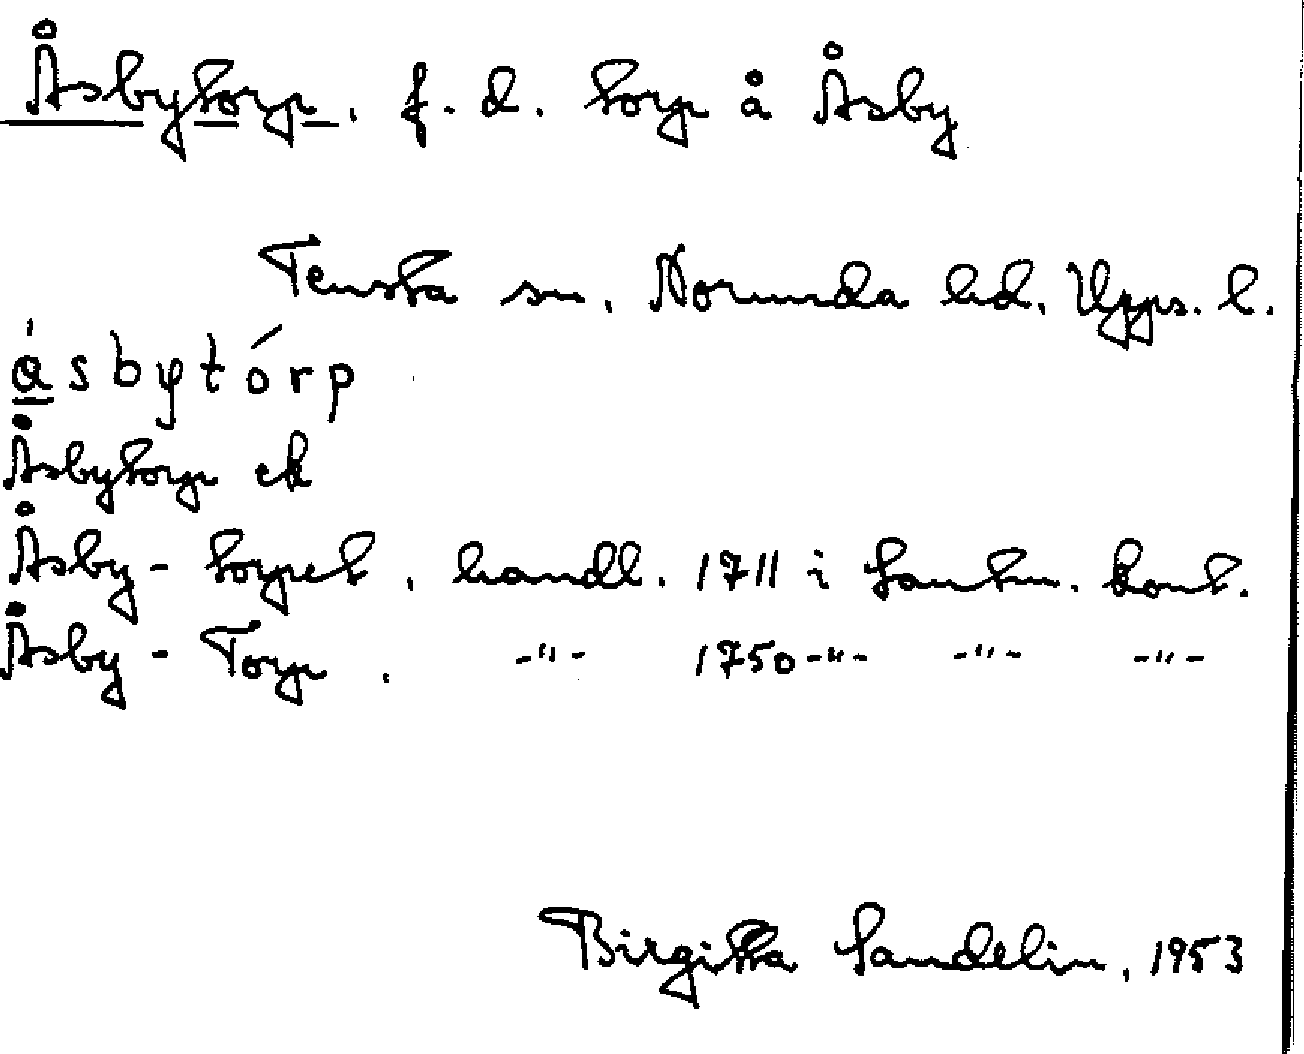 Åsbytorp. f.d. torp å Åsby
Tensta sn. Norunda hd. Upps. l.
åsbytórp
Åsbytorp ek
Åsby-torpet, handl. 1711 i Lantm. kont.
Åsby-Torp. -"- 1750 -"- -"- -"-
Birgitta Sandelin, 1953